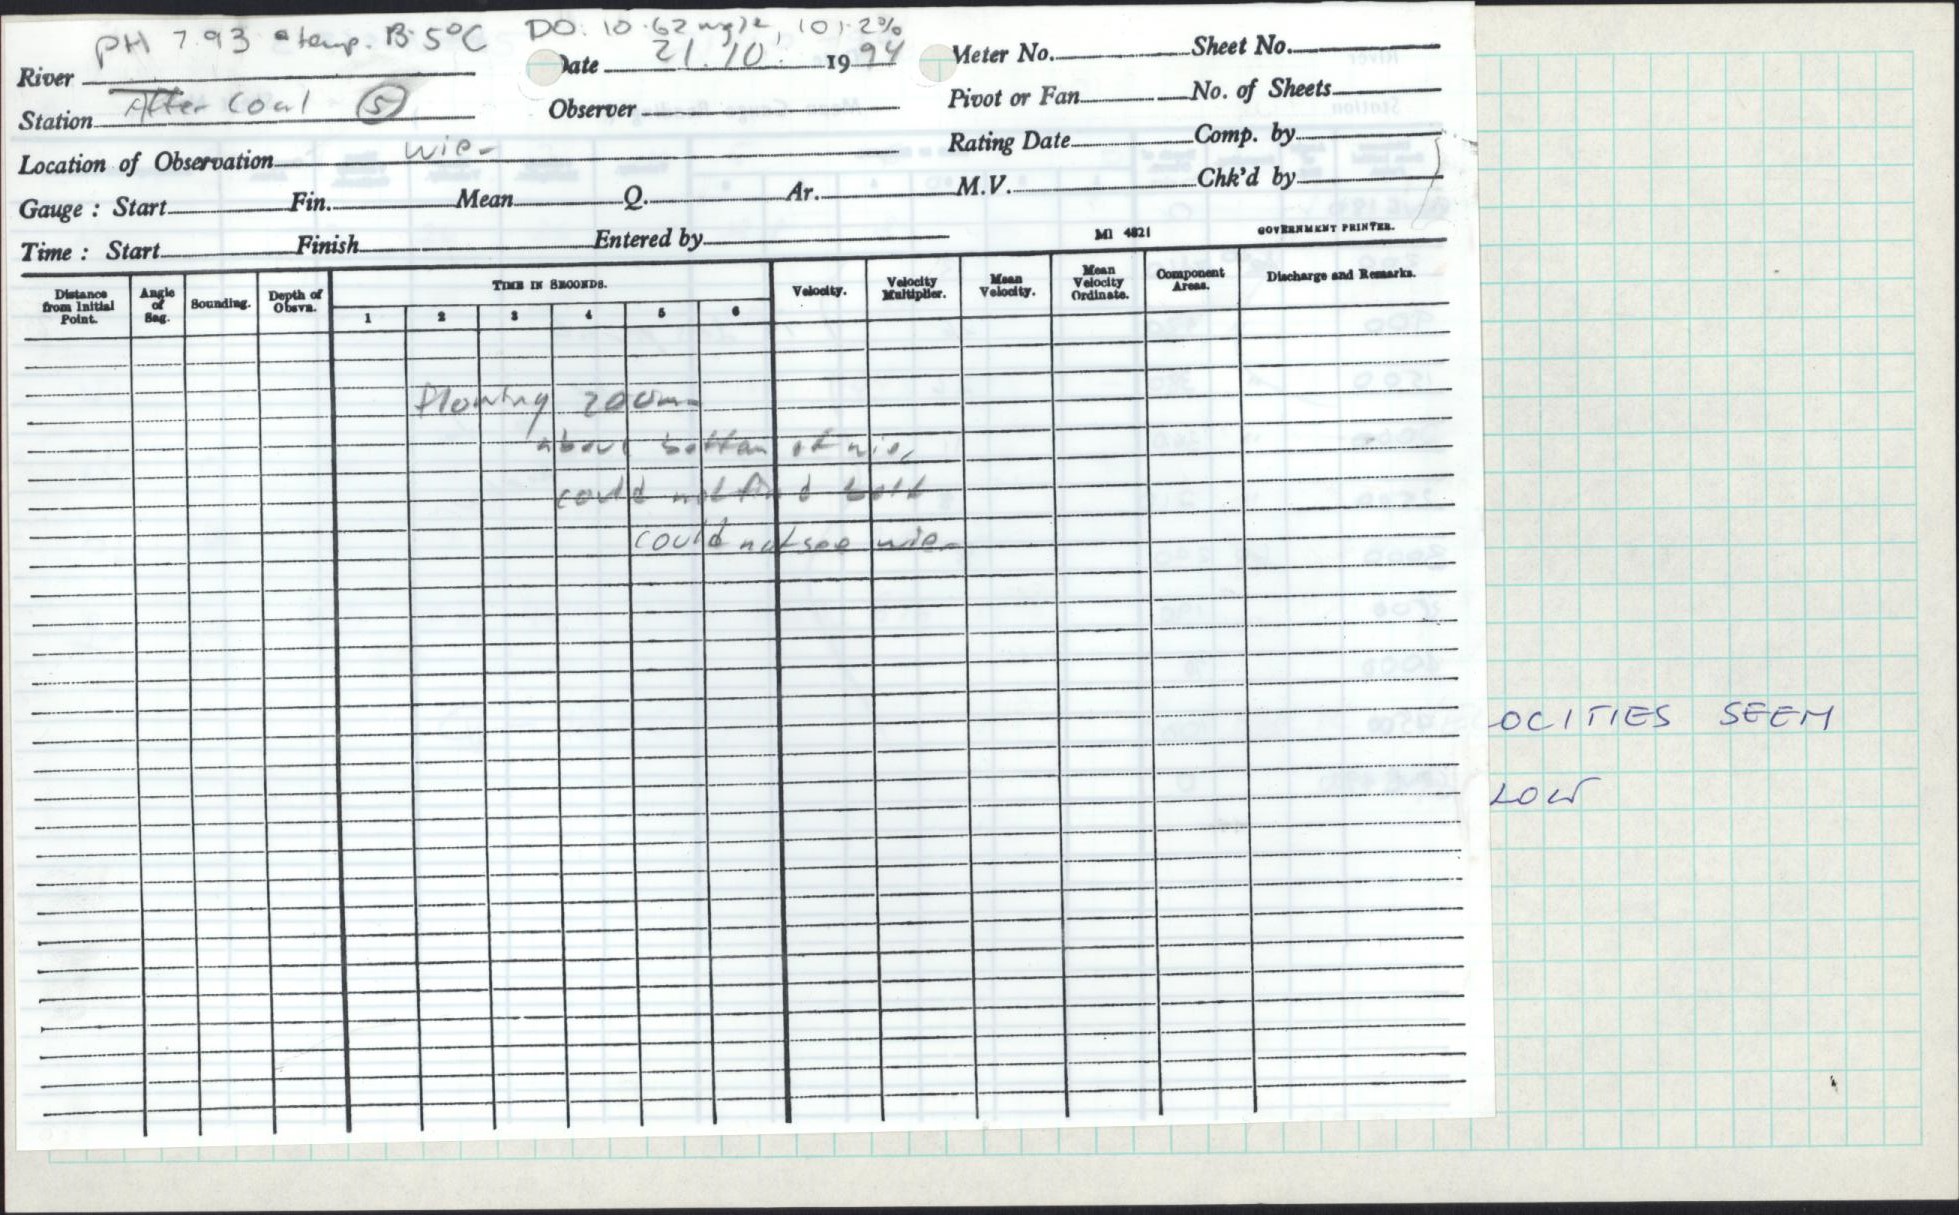 PH 7.93 @ temp. 13.5°C DO: 10.62 mg/l, 101.2%
River Date 21.10. 1994 Meter No. Sheet No.
Station After Coal (5) Observer Pivot or Fan No. of Sheets
Location of Observation wier Rating Date Comp. by
Gauge : Start Fin. Mean Q. Ar. M.V. Chk'd by
Time : Start Finish Entered by MI 4821 GOVERNMENT PRINTER.
Distance from Initial Point. Angle of Sag. Sounding. Depth of Obsvn. TIME IN SECONDS. Velocity. Velocity Multiplier. Mean Velocity. Mean Velocity Ordinate. Component Areas. Discharge and Remarks.
1 2 3 4 5 6
flowing
above bottom of wier
could not find bolt
could not see wier
OCITIES SEEM
LOW